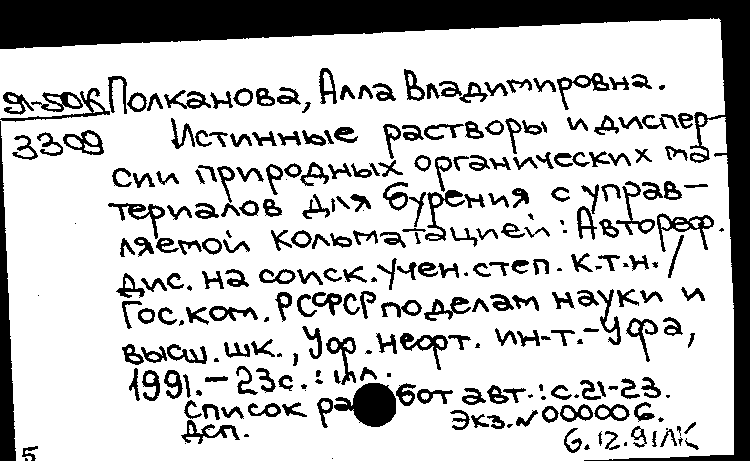 91-50К Полканова, Алла Владимировна.
3309 Истинные растворы и диспер-
сии природных органических ма-
териалов для бурения с управ-
ляемой кольматацией : Автореф.
дис. на соиск. учен. степ. к.т.н. /
Гос. ком. РСФСР по делам науки и
высш. шк., Уф. нефт. ин-т.-Уфа,
1991. - 23с. : ил.
Список работ авт. : с. 21-23.
Дсп. Экз. N 000006.
6.12.91 ЛК
5